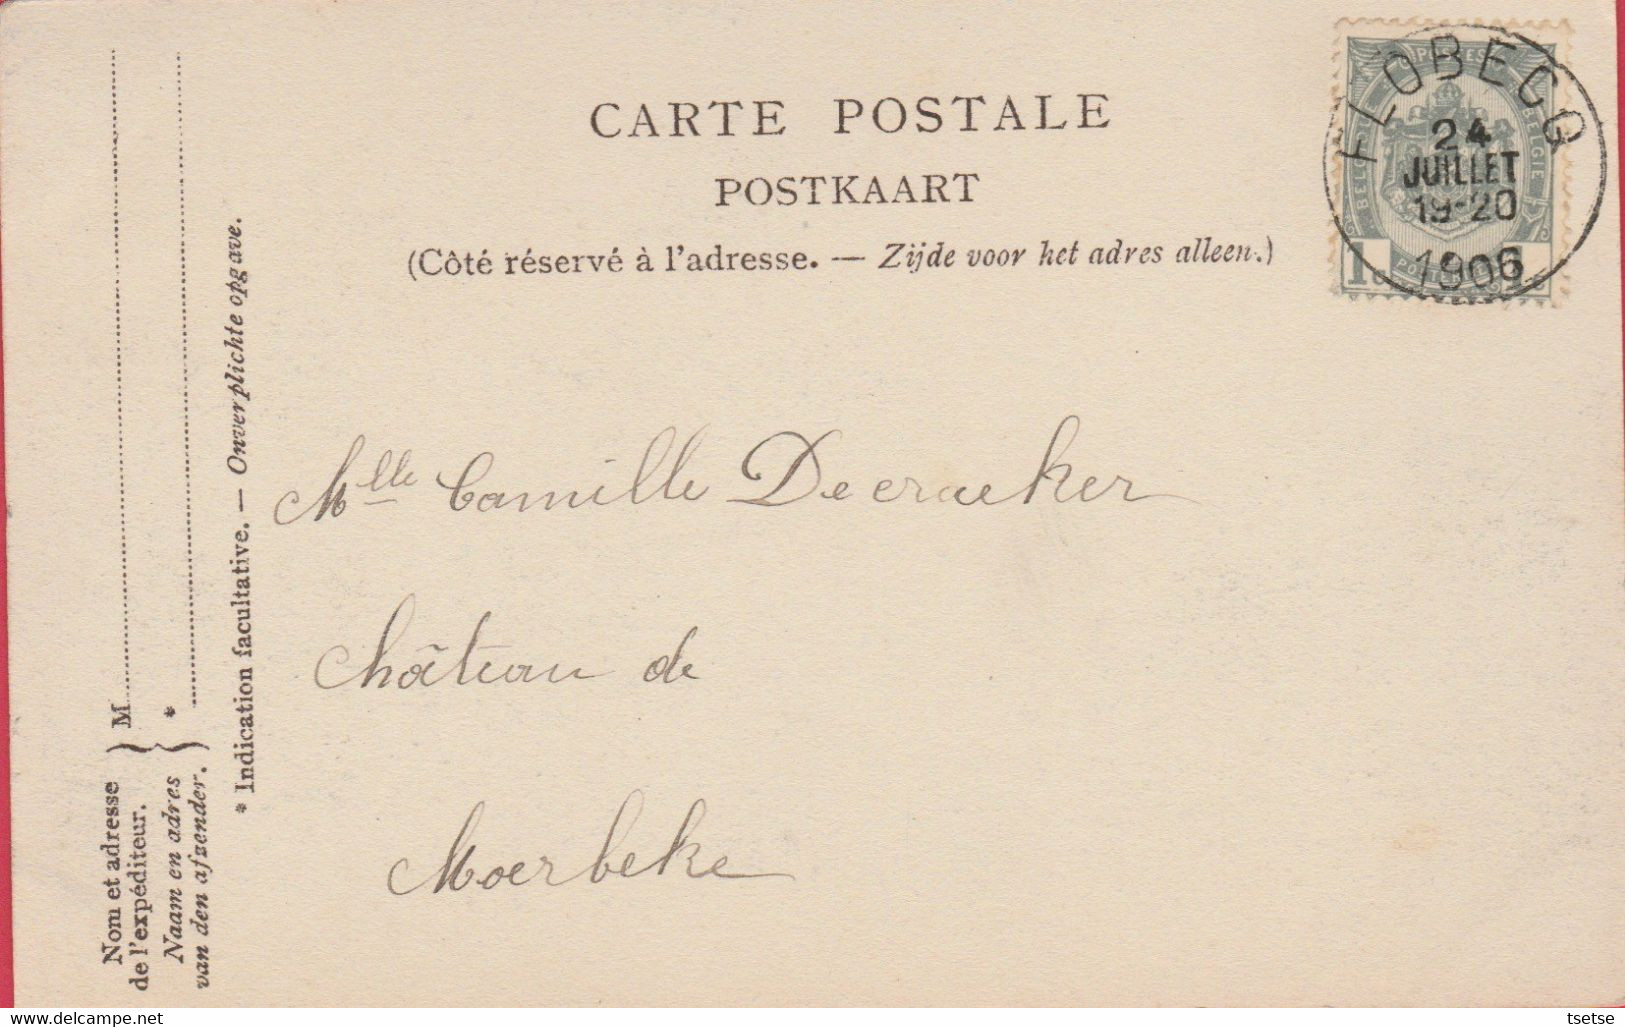 CARTE POSTALE
POSTKAART
(Côté réservé à l'adresse. — Zijde voor het adres alleen.)
FLOBECQ
24
JUILLET
19-20
1906
Mlle Camille Decraeker
Château de
Moerbeke
Nom et adresse
de l'expéditeur.
M
Naam en adres
van den afzender.
*
* Indication facultative. — Onverplichte opgave.
delcampe.net
tsetse